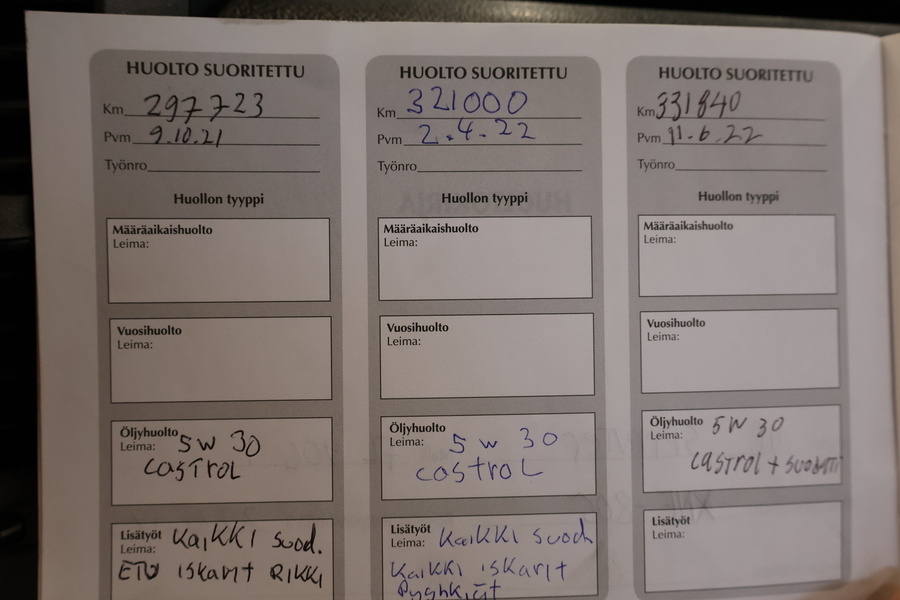 HUOLTO SUORITETTU
Km 297723
Pvm 9.10.21
Työnro
Huollon tyyppi
Määräaikaishuolto
Leima:
Vuosihuolto
Leima:
Öljyhuolto 5W 30
Leima:
CASTROL
Lisätyöt KAIKKI SUOD.
Leima:
ETU ISKARIT RIKKI
HUOLTO SUORITETTU
Km 321000
Pvm 2.4.22
Työnro
Huollon tyyppi
Määräaikaishuolto
Leima:
Vuosihuolto
Leima:
Öljyhuolto
Leima: 5W 30
CASTROL
Lisätyöt
Leima: KAIKKI SUOD
KAIKKI ISKARIT
HUOLTO SUORITETTU
Km 331840
Pvm 11.6.22
Työnro
Huollon tyyppi
Määräaikaishuolto
Leima:
Vuosihuolto
Leima:
Öljyhuolto 5W 30
Leima:
CASTROL +
Lisätyöt
Leima: